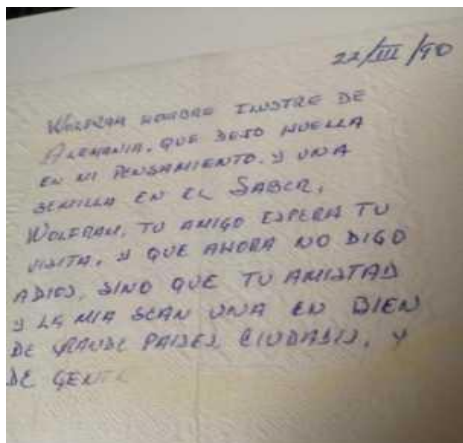 22/III/90
WOLFRAM HOMBRE ILUSTRE DE
ALEMANIA, QUE DEJO HUELLA
EN MI PENSAMIENTO. Y UNA
SEMILLA EN EL SABER,
WOLFRAM, TU AMIGO ESPERA TU
VISITA, Y QUE AHORA NO DIGO
ADIOS, SINO QUE TU AMISTAD
Y LA MIA SEAN UNA EN BIEN
DE PAISES, CIUDADES, Y
DE GENTE